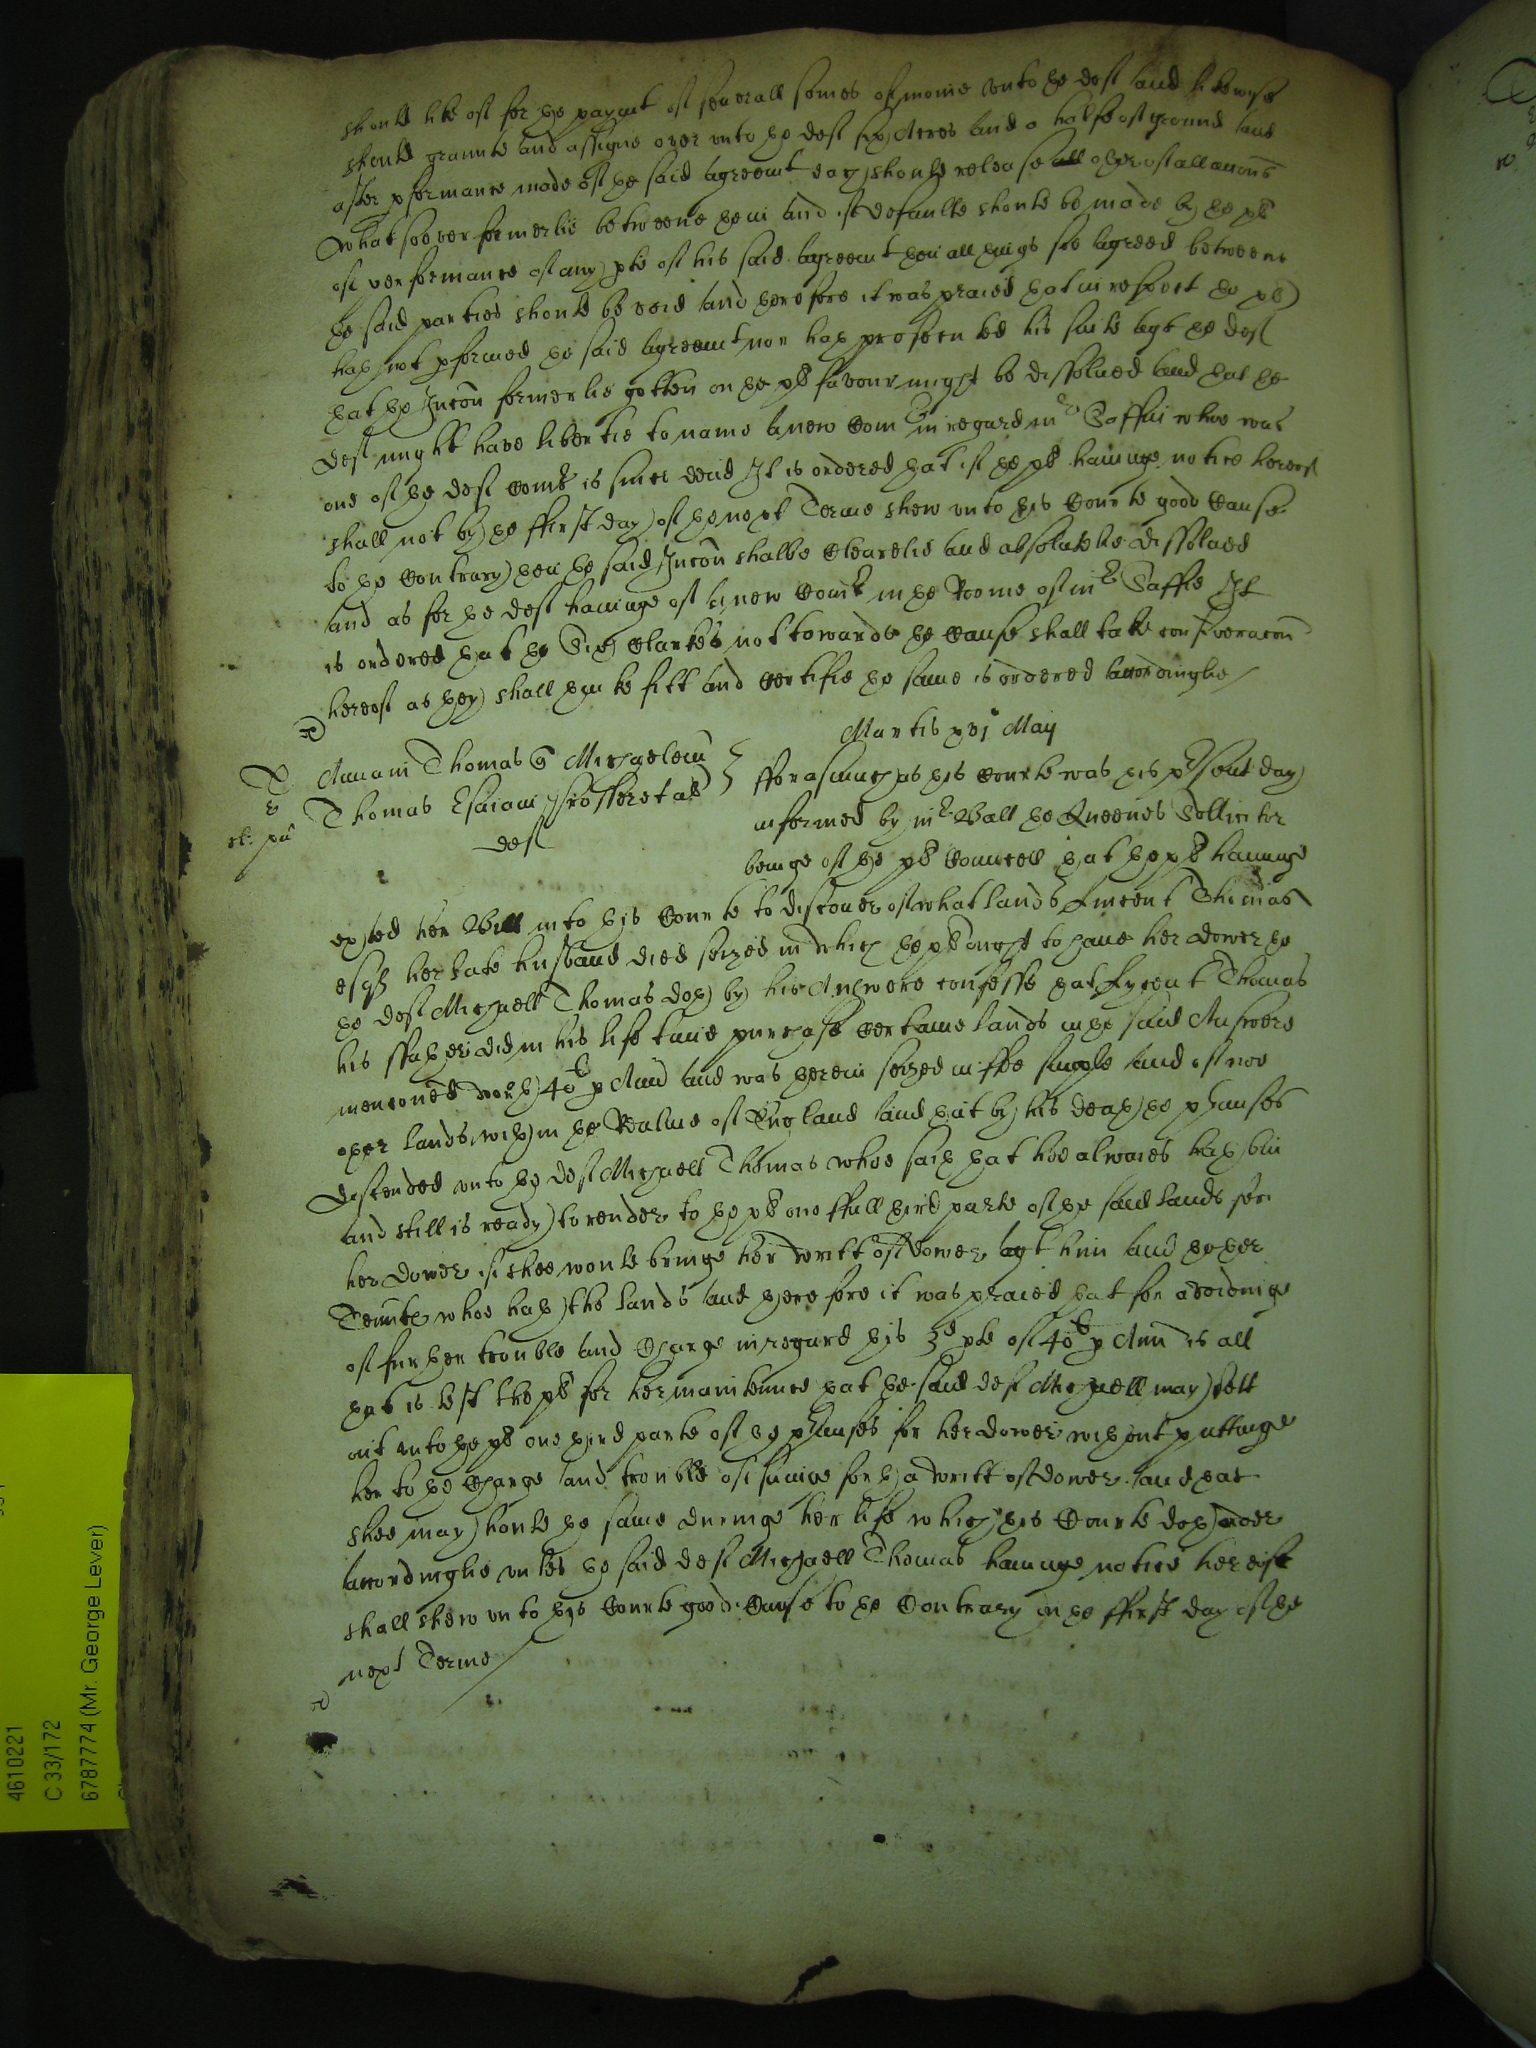 should like of for the paymt of seuerall somes of monie vnto the deft and likewise
should graunte and assigne over vnto the deft six Acres and a halfe of ground and
after pformance made of the said agreemt eay should release all other of all accons
whatsoever formerlie betweene them and if defaulte should be made by the pl
of performance of any pte of his said agreemt then all things soe agreed betweene
the said parties should be void and therefore it was praied that in respect the pl
hath not pformed the said agreemt nor hath prosecuted his suite agt the deft
that the Iniccon formerlie gotten on the pls favour might be dissolued and that the
deft might have libertie to name a new Comr in regard mr Saffin whoe was
one of the deft comrs is since dead It is ordered that if the pl havinge notice hereof
shall not by the ffirst day of the next Terme shew vnto this Courte good Cause
to the Contrary then the said Iniccon shalbe Clearelie and absolutelie dissolued
and as for the deft havinge of a new Comr in the Roome of mr Saffie It
is ordered that the Six Clarkes not towards the Cause shall take consideracon
hereof as they shall thinke fitt and certifie the same is ordered accordinglie
Martis xvjo Maij
T
Annam Thomas Michaelem
Thomas Esaiam et al
deft
fforasmuch as this Courte was this pesent day
informed by mr Wall the Queenes Sollicitor
beinge of the pls Councell that the pl havinge
exhted her Bill into this Courte to discouer of what lands Lincent Thomas
esqr her late husband died seized in which the pl ought to haue her dower the
the deft Michaell Thomas doth by his Answere confesse that Lyncent Thomas
his ffather did in his life time purchase certaine lands in the said Answere
menconed worth 40l p Ann and was therein seized in ffee simple and of noe
other lands within the Realme of England and that by his death the pmisses
descended vnto the deft Michaell Thomas whoe saith that hee alwaies hath bin
and still is ready to render to the pl one ffull third parte of the said lands for
her dower if shee would bringe her writt of dower agt him and the ther
Tennts whoe hath the lands and therefore it was praied that for avoidinge
of further trouble and Charge in regard this 3d pte of 40l p Ann is all
that is left the pl for her maintenance that the said deft Michaell may sett
out vnto the pl one third parte of the pmisses for her dower without puttinge
her to the Charge and trouble of suinge forth a writt of dower and that
shee may hould the same duringe her life which this Courte doth order
accordinglie vnles the said deft Michaell Thomas havinge notice hereof
shall shew vnto this Courte good Cause to the Contrary on the ffirst day of the
next Terme
4610221
C 33/172
6787774 (Mr. George Lever)